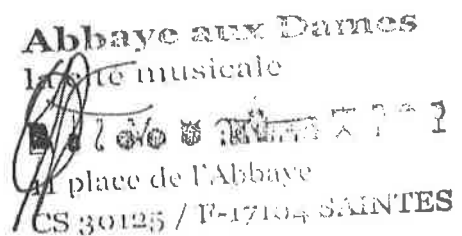 Abbaye aux Dames
la cité musicale
11 place de l'Abbaye
CS 30125 / F-17104 SAINTES